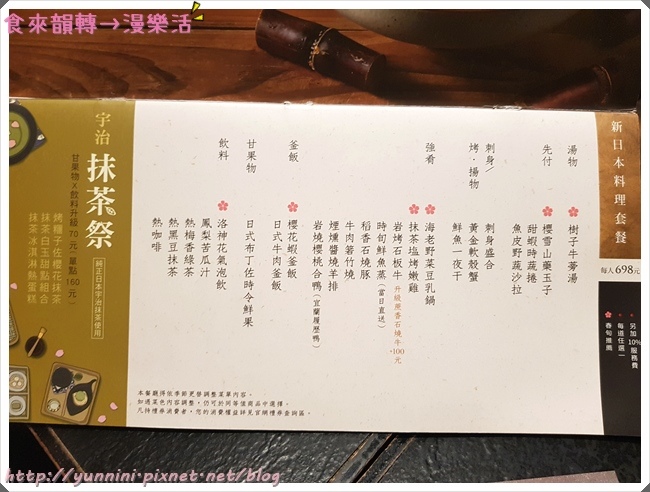 食來韻轉→漫樂活
新日本料理套餐
每人698元
另加10%服務費
每道任選一
春旬推薦
湯物
樹子牛蒡湯
先付
櫻雪山藥玉子
甜蝦時蔬捲
魚皮野蔬沙拉
刺身/
烤・揚物
刺身盛合
黃金軟殼蟹
鮮魚一夜干
強肴
海老野菜豆乳鍋
抹茶塩烤嫩雞
岩烤石板牛 升級蔗香石燒牛+100元
時旬鮮魚蒸(當日直送)
稻香石燒豚
牛肉箬竹燒
煙燻醬燒羊排
岩燒櫻桃合鴨(宜蘭履歷鴨)
釜飯
櫻花蝦釜飯
日式牛肉釜飯
甘果物
日式布丁佐時令鮮果
飲料
洛神花氣泡飲
鳳梨苦瓜汁
熱梅香綠茶
熱黑豆抹茶
熱咖啡
本餐廳得依季節更替調整菜單內容。
如遇菜色內容調整,仍可於同等值商品中選擇。
凡持禮券消費者,您的消費權益詳見官網禮券查詢區。
宇治
抹茶祭
純正日本宇治抹茶使用
甘果物X飲料升級70元(單點160元)
烤糰子佐櫻花抹茶
抹茶白玉甜點組合
抹茶冰淇淋熱蛋糕
http://yunnini.pixnet.net/blog